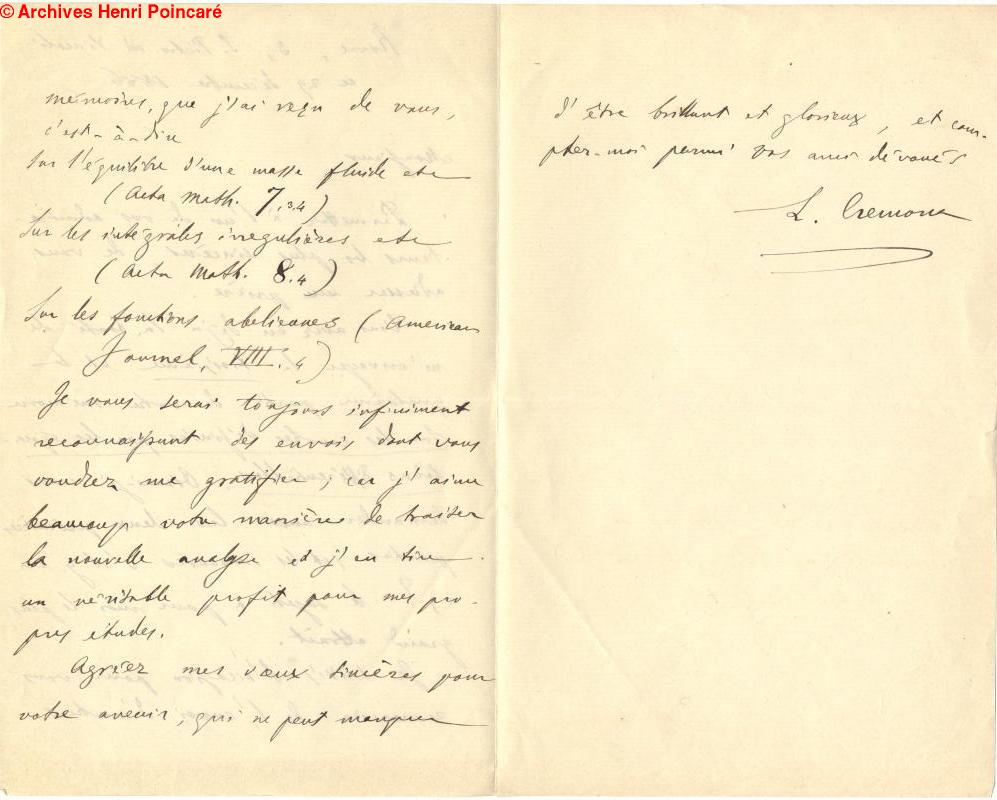 © Archives Henri Poincaré
mémoires, que j'ai reçu de vous,
c'est-à-dire
Sur l'équilibre d'une masse fluide etc
(Acta Math. 7.3,4)
Sur les intégrales irregulières etc
(Acta Math. 8.4)
Sur les fonctions abeliennes (American
Journal, VIII.4)
Je vous serai toujours infiniment
reconnaissant des envois dont vous
voudrez me gratifier; car j'aime
beaucoup votre manières de traiter
la nouvelle analyse et j'en tire
un véritable profit pour mes pro-
pres études.
Agréez mes vœux sincères pour
votre avenir, qui ne peut manquer
d'être brillant et glorieux, et comp-
ptez-moi parmi vos amis dévoués
L. Cremona